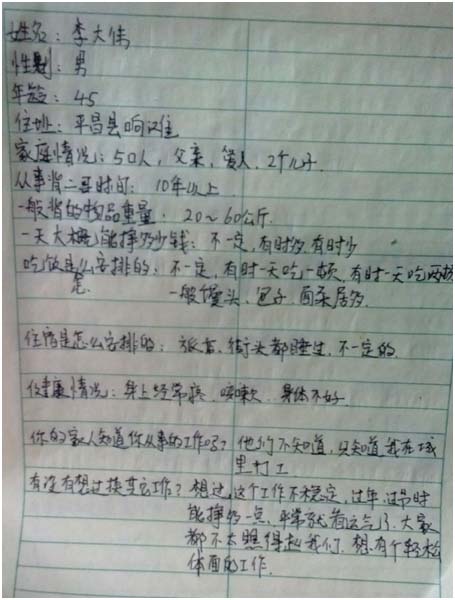 姓名：李大伟
性别：男
年龄：45
住址：平昌县响滩
家庭情况：5口人，父亲，爱人，2个儿子
从事背二哥时间：10年以上
一般背的物品重量：20～60公斤
一天大概能挣多少钱：不一定，有时多，有时少
吃饭是怎么安排的：不一定，有时一天吃一顿，有时一天吃两顿
一般馒头、包子、面条居多
住宿是怎么安排的：街头都睡过，不一定的
健康情况：身上经常疼，咳嗽，身体不好
你的家人知道你从事的工作吗？他们不知道，只知道我在城
里打工
有没有想过换其它工作？想过，这个工作不稳定，过年、过节时
能挣多一点，平常就看运气了。大家
都不太瞧得起我们，想有个轻松
体面的工作